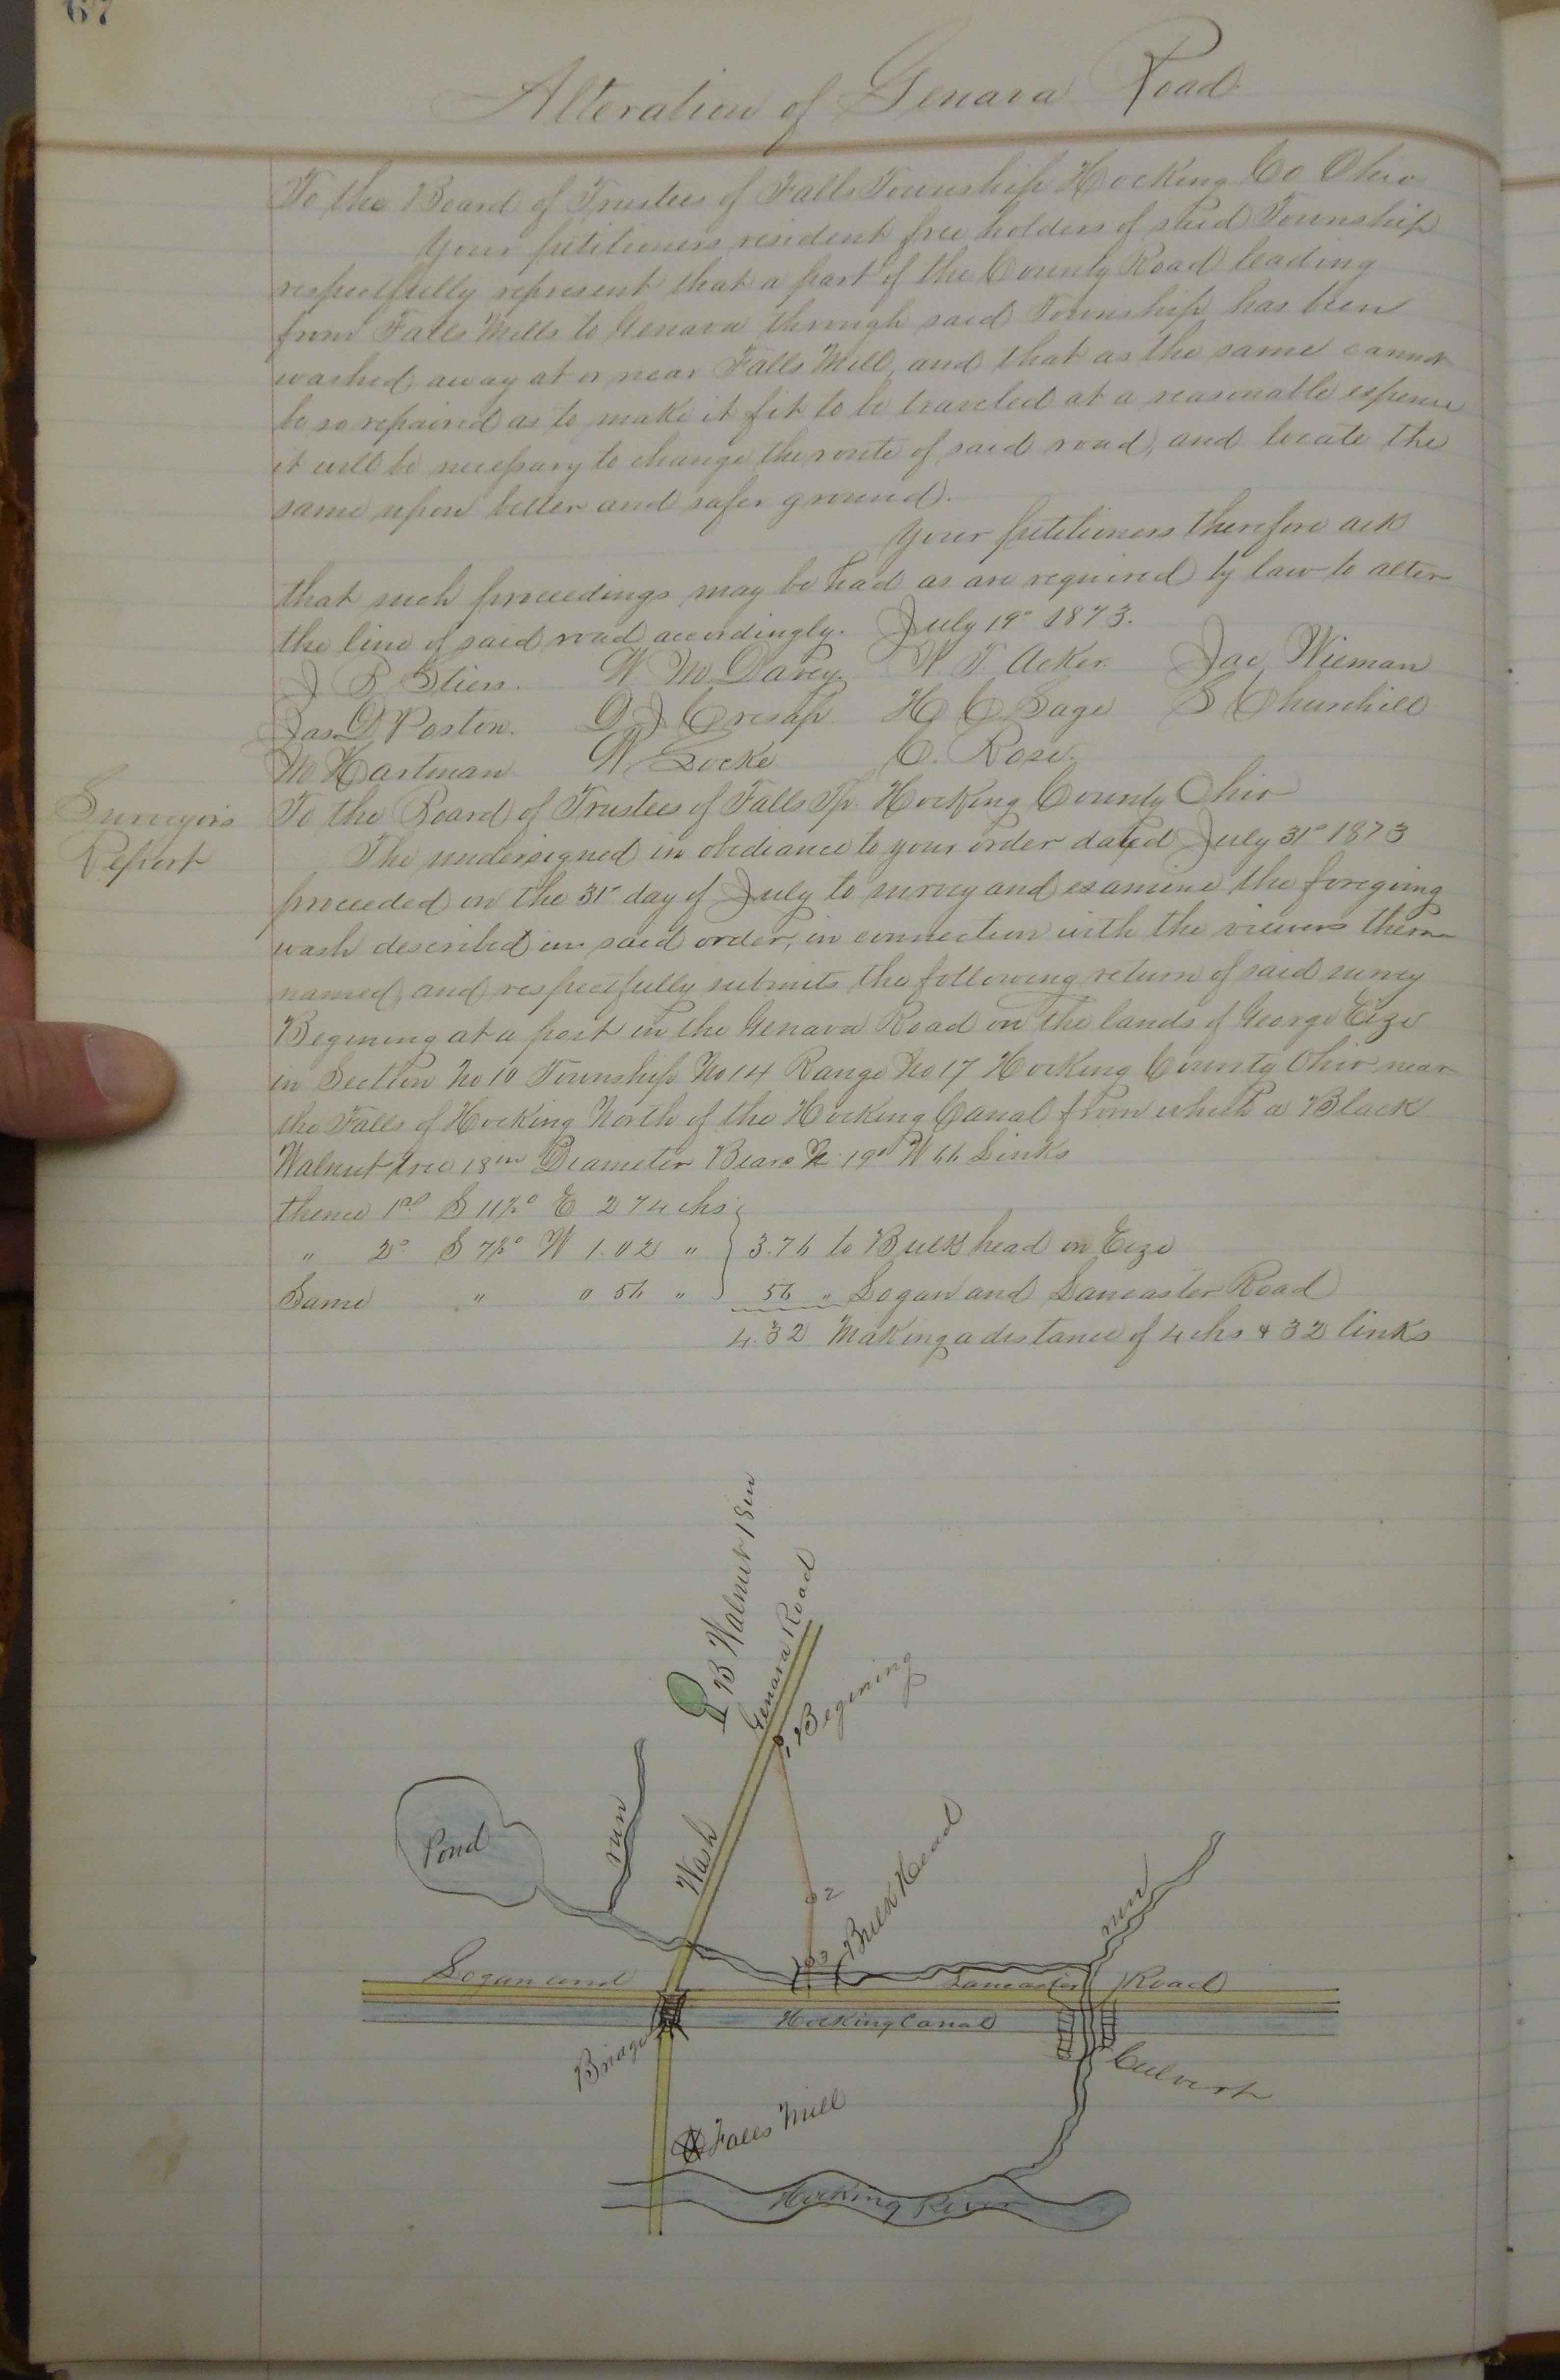 67
Alteration of Genava Road
To the Board of Trustees of Falls Township Hocking Co Ohio
Your petitioners resident free holders of said Township
respectfully represent that a part of the County Road leading
from Falls Mills to Genava through said Township has been
washed away at or near Falls Mill, and that as the same cannot
be so repaired as to make it fit to be traveled at a reasonable expense
it will be necessary to change the route of said road, and locate the
same upon better and safer ground.
Your petitioners therefore ask
that such proceedings may be had as are required by law to alter
the line of said road accordingly. July 19" 1873.
J B Stiers. W M Davey. W T Acker. Jac Wieman
Jas D Poston. D J Cresap H C Sage S Churchill
M Hartman W Locke C. Rose.
Surveyors Report
To the Board of Trustees of Falls Tp. Hocking County Ohio
The undersigned in obediance to your order dated July 31" 1873
proceeded on the 31" day of July to survey and examine the foregoing
wash described in said order, in connection with the viewers therein
named, and respectfully submits the following return of said survey
Begining at a post in the Genava Road on the lands of George Eize
in Section No 10 Township No 14 Range No 17 Hocking County Ohio near
the Falls of Hocking North of the Hocking Canal from which a Black
Walnut tree 18in Diameter Bears N 19° W 66 Links
thence 1st S 11½° E 2 74 chs
" 2" S 7½° W 1.02 " } 3.76 to Bulkhead on Eize
Same " " 56 " 56 " Logan and Lancaster Road
4.32 Making a distance of 4 chs & 32 links
B Walnut 18in
Genava Road
1, Begining
run
Wash
Pond
2
Bulk Head
run
3
Logan and Lancaster Road
Hocking Canal
Bridge
Culvert
Falls Mill
Hocking River